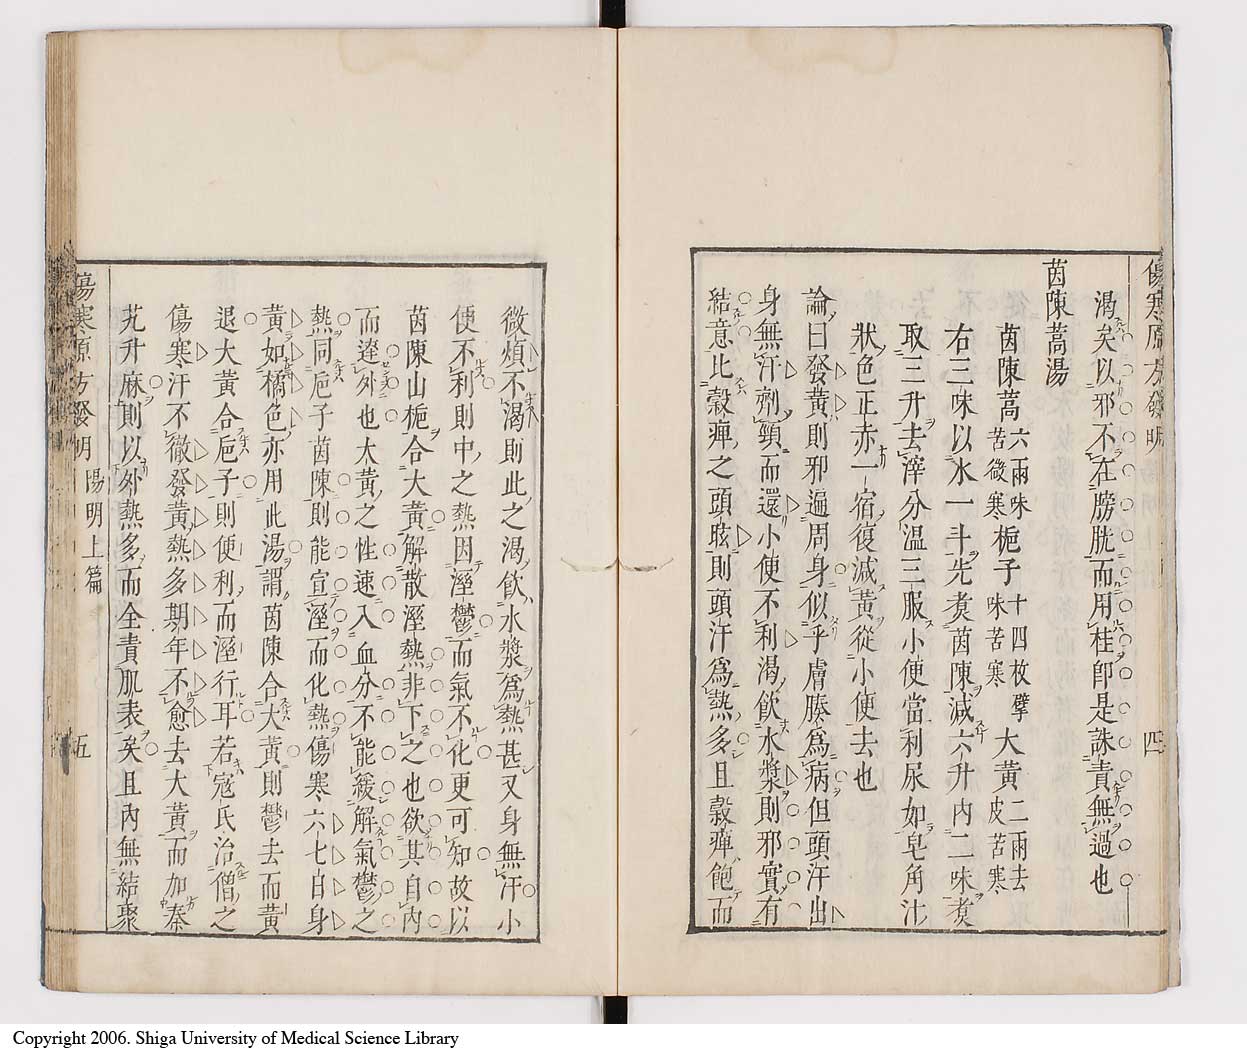 傷寒原方發明 四
渴矣以邪不在膀胱而用桂卽是誅責無過也
茵陳蒿湯
茵陳蒿六兩味苦微寒梔子十四枚擘味苦寒大黃二兩去皮苦寒
右三味以水一斗先煮茵陳減六升內二味煮
取三升去滓分溫三服小便當利尿如皂角汁
狀色正赤一宿復減黃從小便去也
論曰發黃則邪遍周身似乎膚腠爲病但頭汗出
身無汗劑頸而還小便不利渴飮水漿則邪實有
結意比穀癉之頭眩則頭汗爲熱多且穀癉飽而
微煩不渴則此之渴飮水漿爲熱甚又身無汗小
便不利則中之熱因溼鬱而氣不化更可知故以
茵陳山梔合大黃解散溼熱非下之也欲其自內
而達外也大黃之性速入血分不能緩解氣鬱之
熱同巵子茵陳則能宣溼而化熱傷寒六七日身
黃如橘色亦用此湯謂茵陳合大黃則鬱去而黃
退大黃合巵子則便利而溼行耳若寇氏治僧之
傷寒汗不徹發黃熱多期年不愈去大黃而加秦
艽升麻則以外熱多而全責肌表矣且內無結聚
傷寒原方發明 陽明上篇 五
Copyright 2006. Shiga University of Medical Science Library